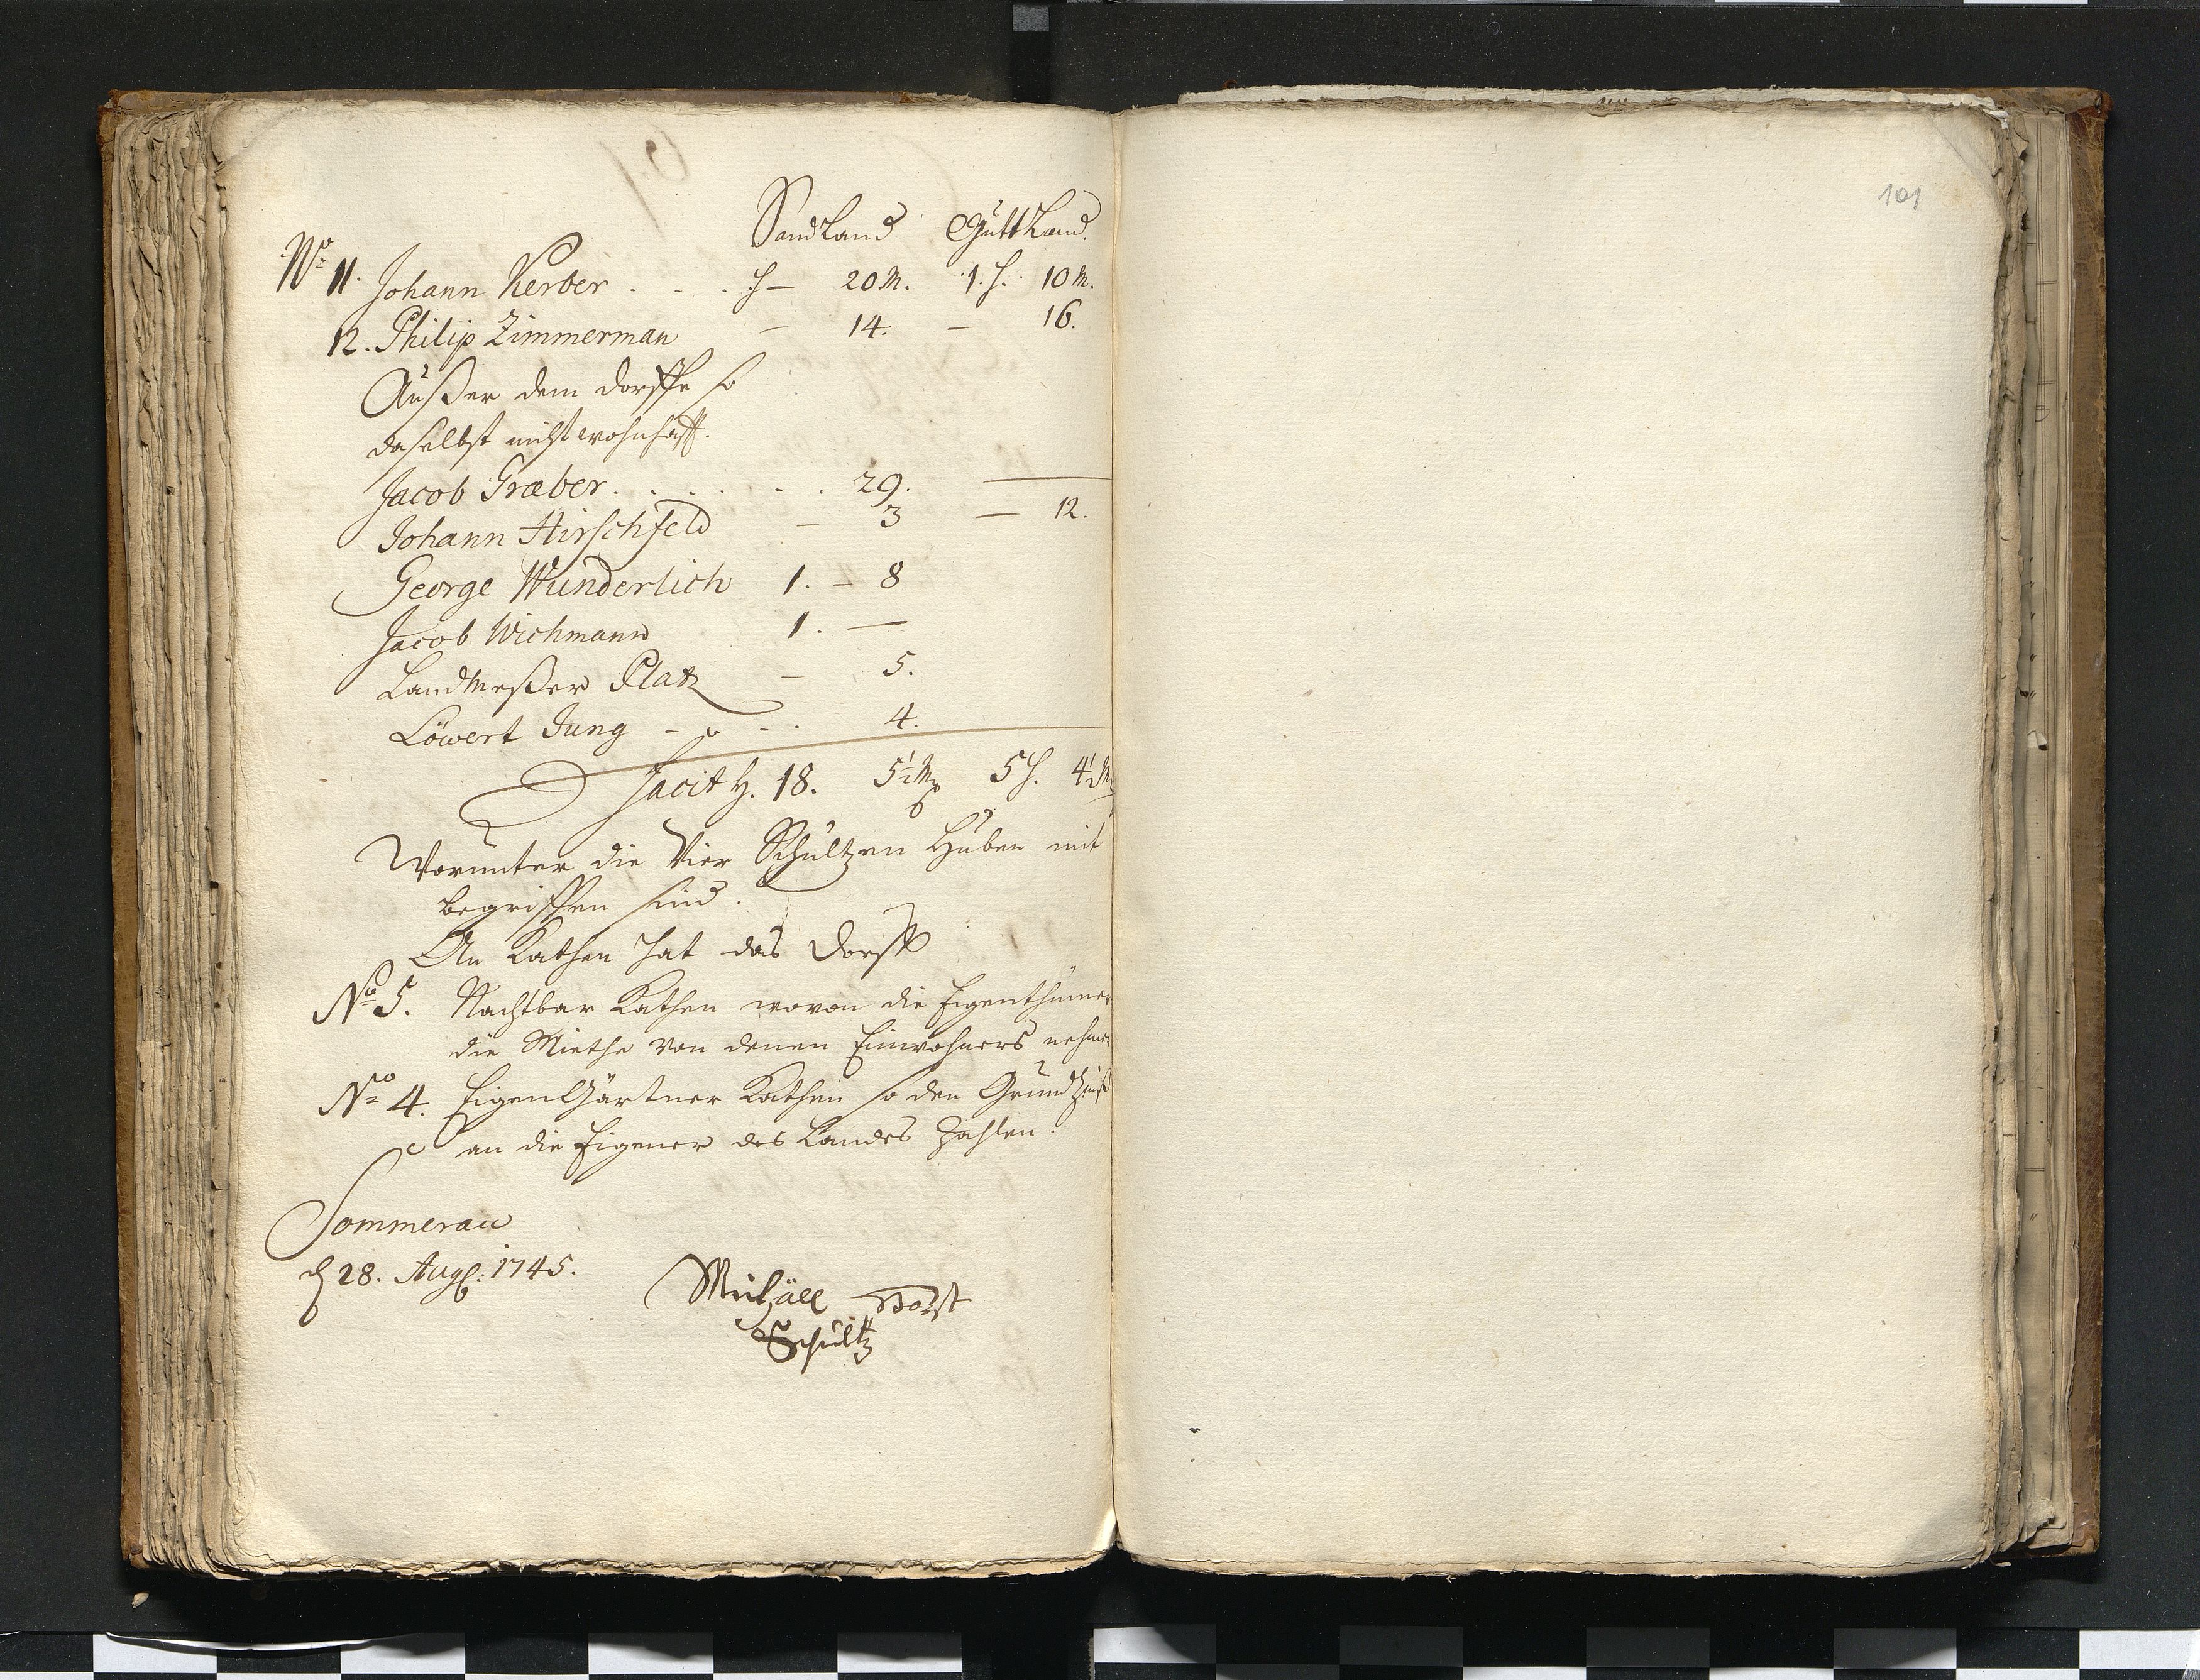 SandLand GuttLand.
No 11. Johann Kerber . . . H – 20 M. 1. H. 10 M.
12. Philip Zimmerman – 14. – 16.
Außer dem dorffe so
daselbst nicht wohnhafft.
Jacob Græber . . . . . . 29. —
Johann Hirschfeld – 3 — 12.
George Wunderlich 1. – 8
Jacob Wichmann 1. —
Landmeßer Platz – 5.
Löwert Jung – . – . . 4.
Facit H. 18. 5½ M 5 H. 4½ M
Worunter die Vier Schultzen Huben mit
begriffen sind.
An Kathen hat das Dorff
No 5. Nachtbar Kathen wovon die Eigenthümer
die Miethe von denen Einwohners nehmen
No 4. Eigen Gärtner Kathen so den Grund Zinß
an die Eigener des Landes Zahlen.
Sommerau
d 28. Aug: 1745.
Michäel Horst
Schultz
101